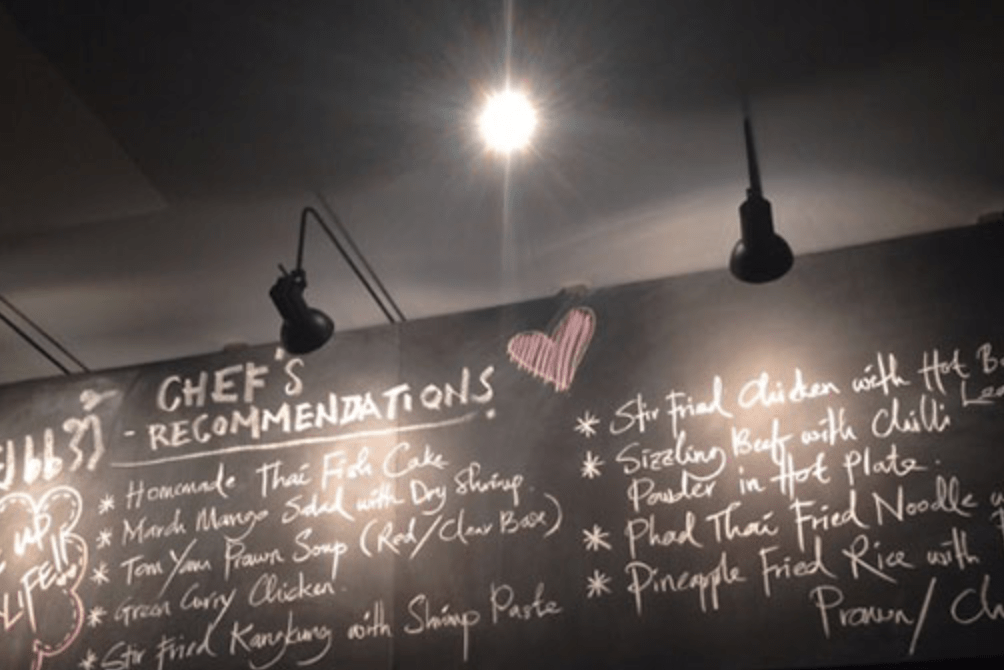 CHEF'S
- RECOMMENDATIONS
* Homemade Thai Fish Cake
* Marah Mango Salad with Dry Shrimp
* Tom Yam Prawn Soup (Red/Clear Base)
* Green Curry Chicken
* Stir Fried Kangkung with Shrimp Paste
UP
LIFE
* Stir Fried Chicken with Hot B
Lea
* Sizzling Beef with Chilli
Powder in Hot Plate.
* Phad Thai Fried Noodle
* Pineapple Fried Rice with
Prawn/ Ch